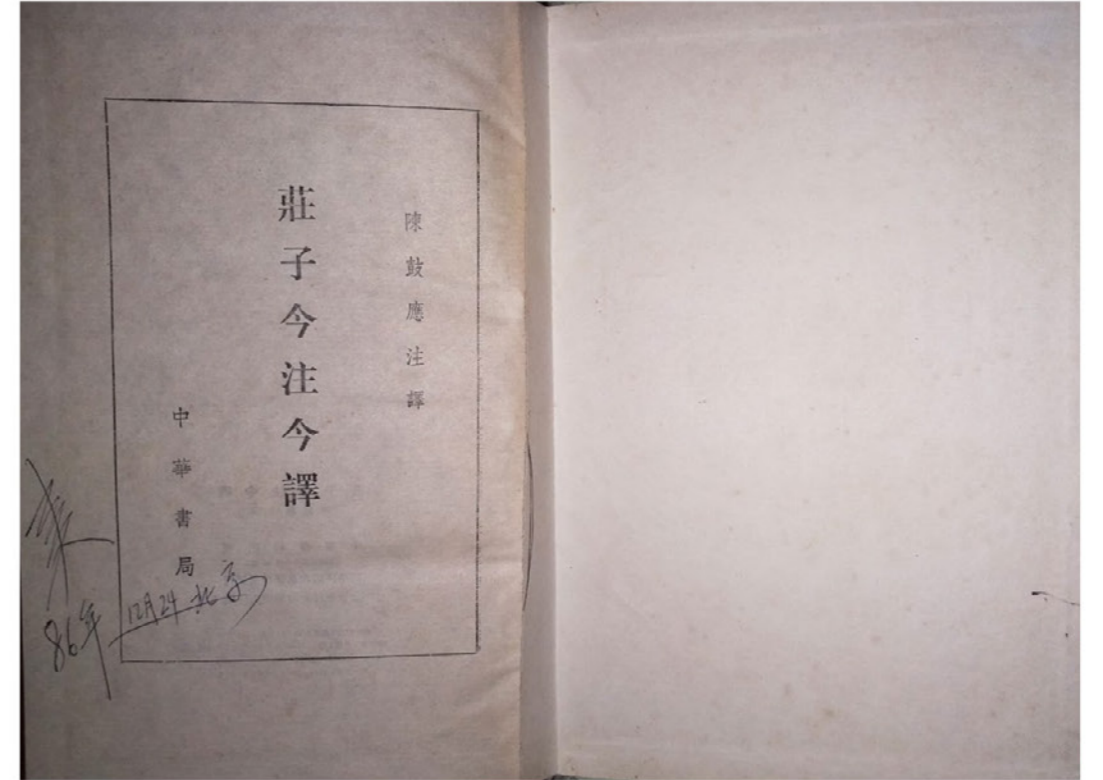 陳鼓應注譯
莊子今注今譯
中華書局
86年
12月24 北京